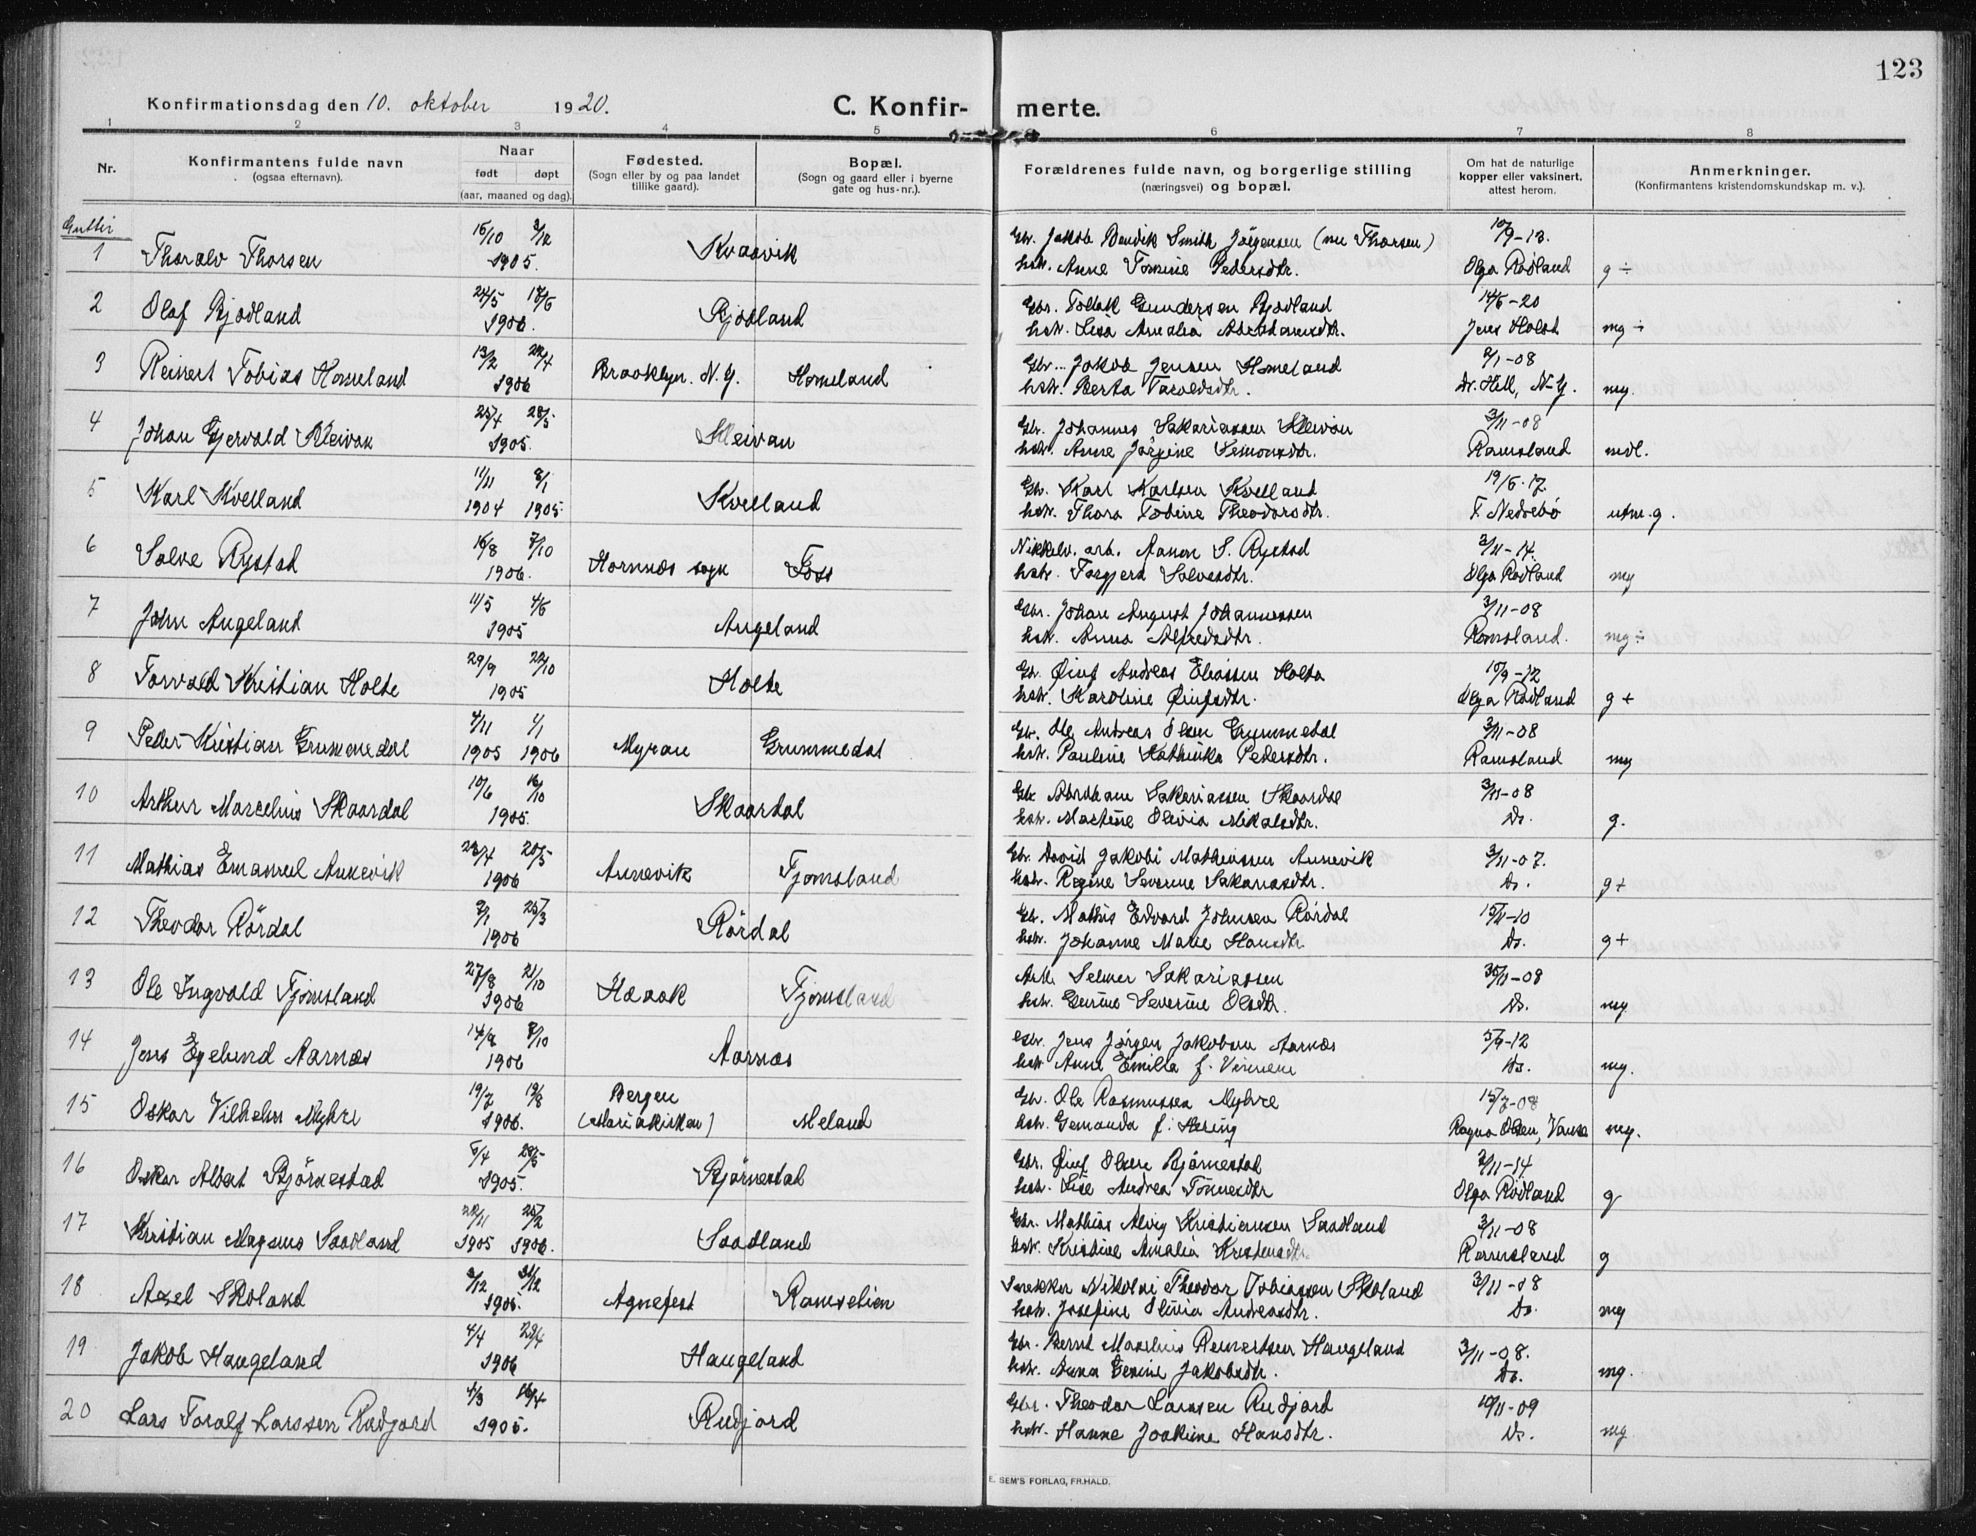 123
Konfirmationsdag den 10. oktober 1920.
C. Konfirmerte.
1 2 3 4 5 6 7 8
Nr.
Konfirmantens fulde navn
(ogsaa efternavn).
Naar
født døpt
(aar, maaned og dag).
Fødested.
(Sogn eller by og paa landet
tillike gaard).
Bopæl.
(Sogn og gaard eller i byerne
gate og hus-nr.).
Forældrenes fulde navn, og borgerlige stilling
(næringsvei) og bopæl.
Om hat de naturlige
kopper eller vaksinert,
attest herom.
Anmerkninger.
(Konfirmantens kristendomskundskap m. v.).
Gutter
15/10 3/12 Gbr. Jakob Bendik Smith Jørgensen (nu Thorsen) 10/9-13.
1 Thoralv Thorsen 1905. Kvaavik hstr. Anne Tomine Pedersdtr. Olga Rødland g÷
24/5 17/6 Gbr. Tollak Gundersen Bjødland 14/6-20
2 Olaf Bjødland 1906. Bjødland hstr. Lisa Amalia Abrahamsdtr. Jens Holst mg÷
13/2 22/4 Gbr. Jakob Jensen Homeland 2/1-08
3 Reinert Tobias Homeland 1906 Brooklyn. N.Y. Homeland hstr. Berta Tarvoldsdtr. Dr. Hill, N-Y. mg.
25/4 28/5 Gbr. Johannes Sakariassen Kleivan 3/11-08
4 Johan Gjervald Kleivan 1905. Kleivan hstr. Anne Jørgine Simonsdtr. Ramsland mdl.
11/11 8/1 Gbr. Karl Karlsen Kvelland 19/6-17
5 Karl Kvelland 1904 1905. Kvelland hstr. Thora Tobine Theodorsdtr. T. Nedrebø utm.g.
16/8 7/10 Nikkelv. arb. Aanon S. Rystad 3/11-14.
6 Salve Rystad 1906. Hornnæs sogn Foss hstr. Torgjerd Salvesdtr. Olga Rødland mg
11/5 4/6 Gbr. Johan August Johannessen 3/11-08
7 John Augeland 1905 Augeland hstr. Anna Alfredsdtr. Ramsland. mg÷
29/9 22/10 Gbr. Øiuf Andreas Eliassen Holte 10/9-12
8 Torvald Kristian Holte 1905 Holte hstr. Karoline Øiufsdtr. Olga Rødland g+
4/11 1/1 Gbr. Ole Andreas Olsen Grummedal 3/11-08
9 Peder Kristian Grummedal 1905 1906 Myran Grummedal hstr. Pauline Kathinka Pedersdtr. Ramsland mg
10/6 16/10 Gbr. Abraham Sakariassen Skaardal 3/11-08
10 Arthur Marcelius Skaardal 1905. Skaardal hstr. Martine Olivia Mikalsdtr. Do. g.
23/4 20/5 Gbr. David Jakobi Mathiassen Aunevik 3/11-07.
11 Mathias Emanuel Aunevik 1906 Aunevik Fjomsland hstr. Regine Severine Sakariasdtr. Do. g+
2/1 25/3 Gbr. Mathis Edvard Johnsen Rørdal 15/11-10
12 Theodor Rørdal 1906 Rørdal hstr. Johanne Marie Hansdtr. Do. g+
27/8 21/10 Arb. Selmer Sakariassen 30/11-08
13 Ole Ingvald Fjomsland 1906 Haaok Fjomsland hstr. Gurine Severine Olsdtr. Do. mg.
14/8 7/10 Gbr. Jens Jørgen Jakobsen Aarnæs 5/9-12
14 Jens Egelund Aarnæs 1906 Aarnæs hstr. Anne Emilie f. Vinnene Do. mg.
19/7 19/8 Bergen Gbr. Ole Rasmussen Myhre 15/7-08
15 Oskar Vilhelm Myhre 1906. (Mariakirken) Meland hstr. Gemanda f. Hering Ragna Olsen, Vanse mg.
5/4 28/5 Gbr. Øiuf Olsen Bjørnestad 3/11-14
16 Oskar Albert Bjørnestad 1905. Bjørnestad hstr. Lise Andrea Tønnesdtr Olga Rødland g
22/11 25/2 Gbr. Mathias Alvig Kristiansen Saadland 3/11-08
17 Kristian Magnus Saadland 1905 1906. Saadland hstr. Kristine Amalia Kristensdtr. Ramsland g
2/12 31/12 Snekker Nikolai Theodor Tobiassen Skoland 3/11-08
18 Axel Skoland 1905. Agnefest Ramslien hstr. Josefine Olivia Andreasdtr. Do. mg
4/4 29/4 Gbr. Bernt Maselius Reinertsen Haugeland 3/11-08.
19 Jakob Haugeland 1906 Haugeland hstr. Anna Gesine Jakobsdtr. Do. mg.
1/3 16/4 Gbr. Theodor Larssen Rudjord 10/11-09
20 Lars Toralf Larssen Rudjord 1905. Rudjord hstr. Hanne Joakime Hansdtr. Do. mg
E. SEM'S FORLAG, FR.HALD.